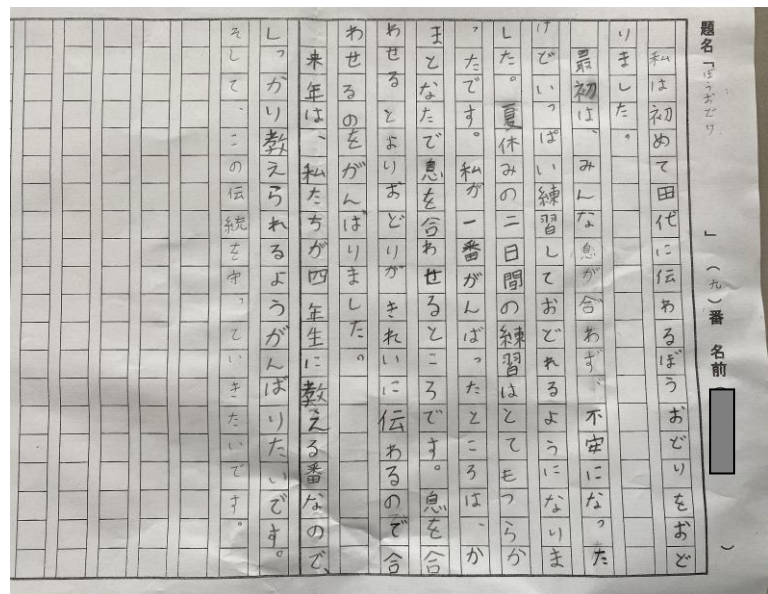 題名「ぼうおどり」（九）番 名前（ ）
私は初めて田代に伝わるぼうおどりをおど
りました。
最初は、みんな息が合わず、不安になった
けどいっぱい練習しておどれるようになりま
した。夏休みの二日間の練習はとてもつらか
ったです。私が一番がんばったところは、か
まとなたで息を合わせるところです。息を合
わせるとよりおどりがきれいに伝わるので合
わせるのをがんばりました。
来年は、私たちが四年生に教える番なので、
しっかり教えられるようがんばりたいです。
そして、この伝統を守っていきたいです。